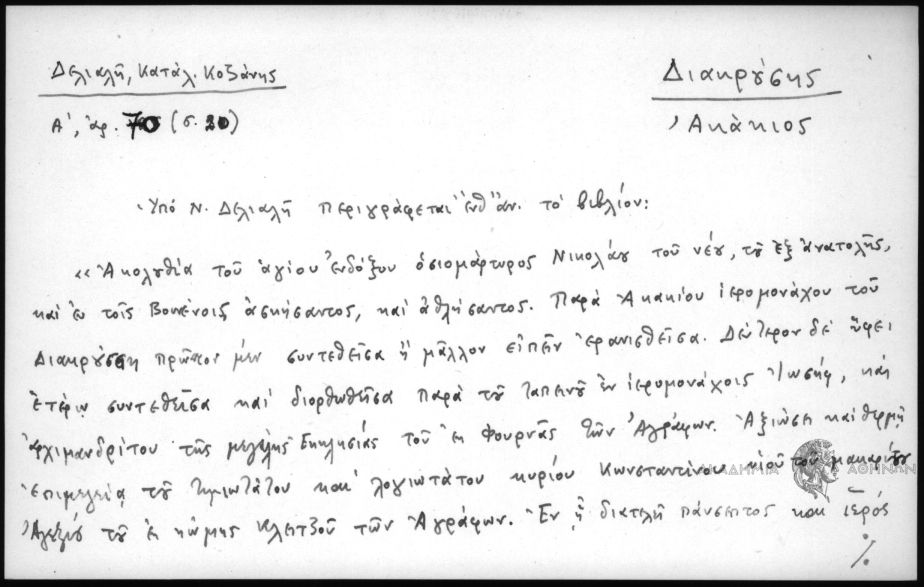 Δελιαλῆ, Κατάλ. Κοζάνης
Διακρούσης
Α', ἀρ. 70 (σ. 20)
Ἀκάκιος
Ὑπό Ν. Δελιαλῆ περιγράφεται ἐνθ' ἀν. τό βιβλίον:
«Ἀκολουθία τοῦ ἁγίου ἐνδόξου ὁσιομάρτυρος Νικολάου τοῦ νέου, τοῦ ἐξ ἀνατολῆς,
καί ἐν τοῖς Βουνένοις ἀσκήσαντος, καί ἀθλήσαντος. Παρά Ἀκακίου ἱερομονάχου τοῦ
Διακρούση πρῶτον μέν συντεθεῖσα ἤ μᾶλλον εἰπεῖν ἐρανισθεῖσα. Δεύτερον δέ ὕφει
ἑτέρῳ συντεθεῖσα καί διορθωθεῖσα παρά τοῦ ταπεινοῦ ἐν ἱερομονάχοις Ἰωσήφ, καί
ἀρχιμανδρίτου τῆς μεγάλης Ἐκκλησίας τοῦ ἐκ Φουρνᾶς τῶν Ἀγράφων. Ἀξιώσει καί θερμῇ
ἐπιμελείᾳ τοῦ τιμιωτάτου καί λογιωτάτου κυρίου Κωνσταντίνου υἱοῦ τοῦ μακαρίτου
τοῦ ἐκ κώμης Κλειτζοῦ τῶν Ἀγράφων. Ἐν ᾗ διατελῆ πάνσεπτος καί ἱερός
%
ΑΚΑΔΗΜΙΑ ΑΘΗΝΩΝ